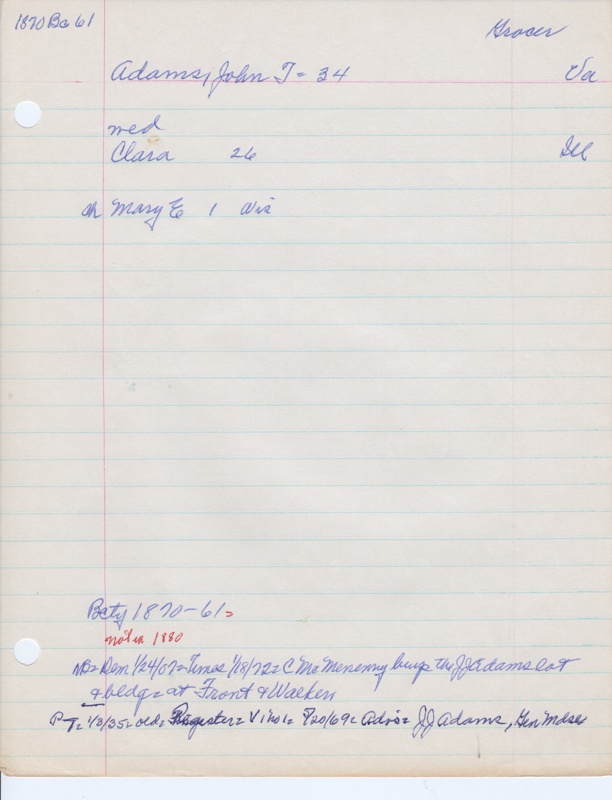 1870 Ba 61
Grocer
Adams, John T = 34 Va
wed
Clara 26 Ill
ch Mary E 1 Wis
Bcty 1870-61=
not in 1880
NB= Dem 1/24/07= Times 1/18/72= C McMenemy buys the JJ Adams lot
& bldg= at Front & Walker
P T= 1/3/35= old= Register= V1 no1= 7/20/69= Adv's= JJ Adams, Gen Mdse